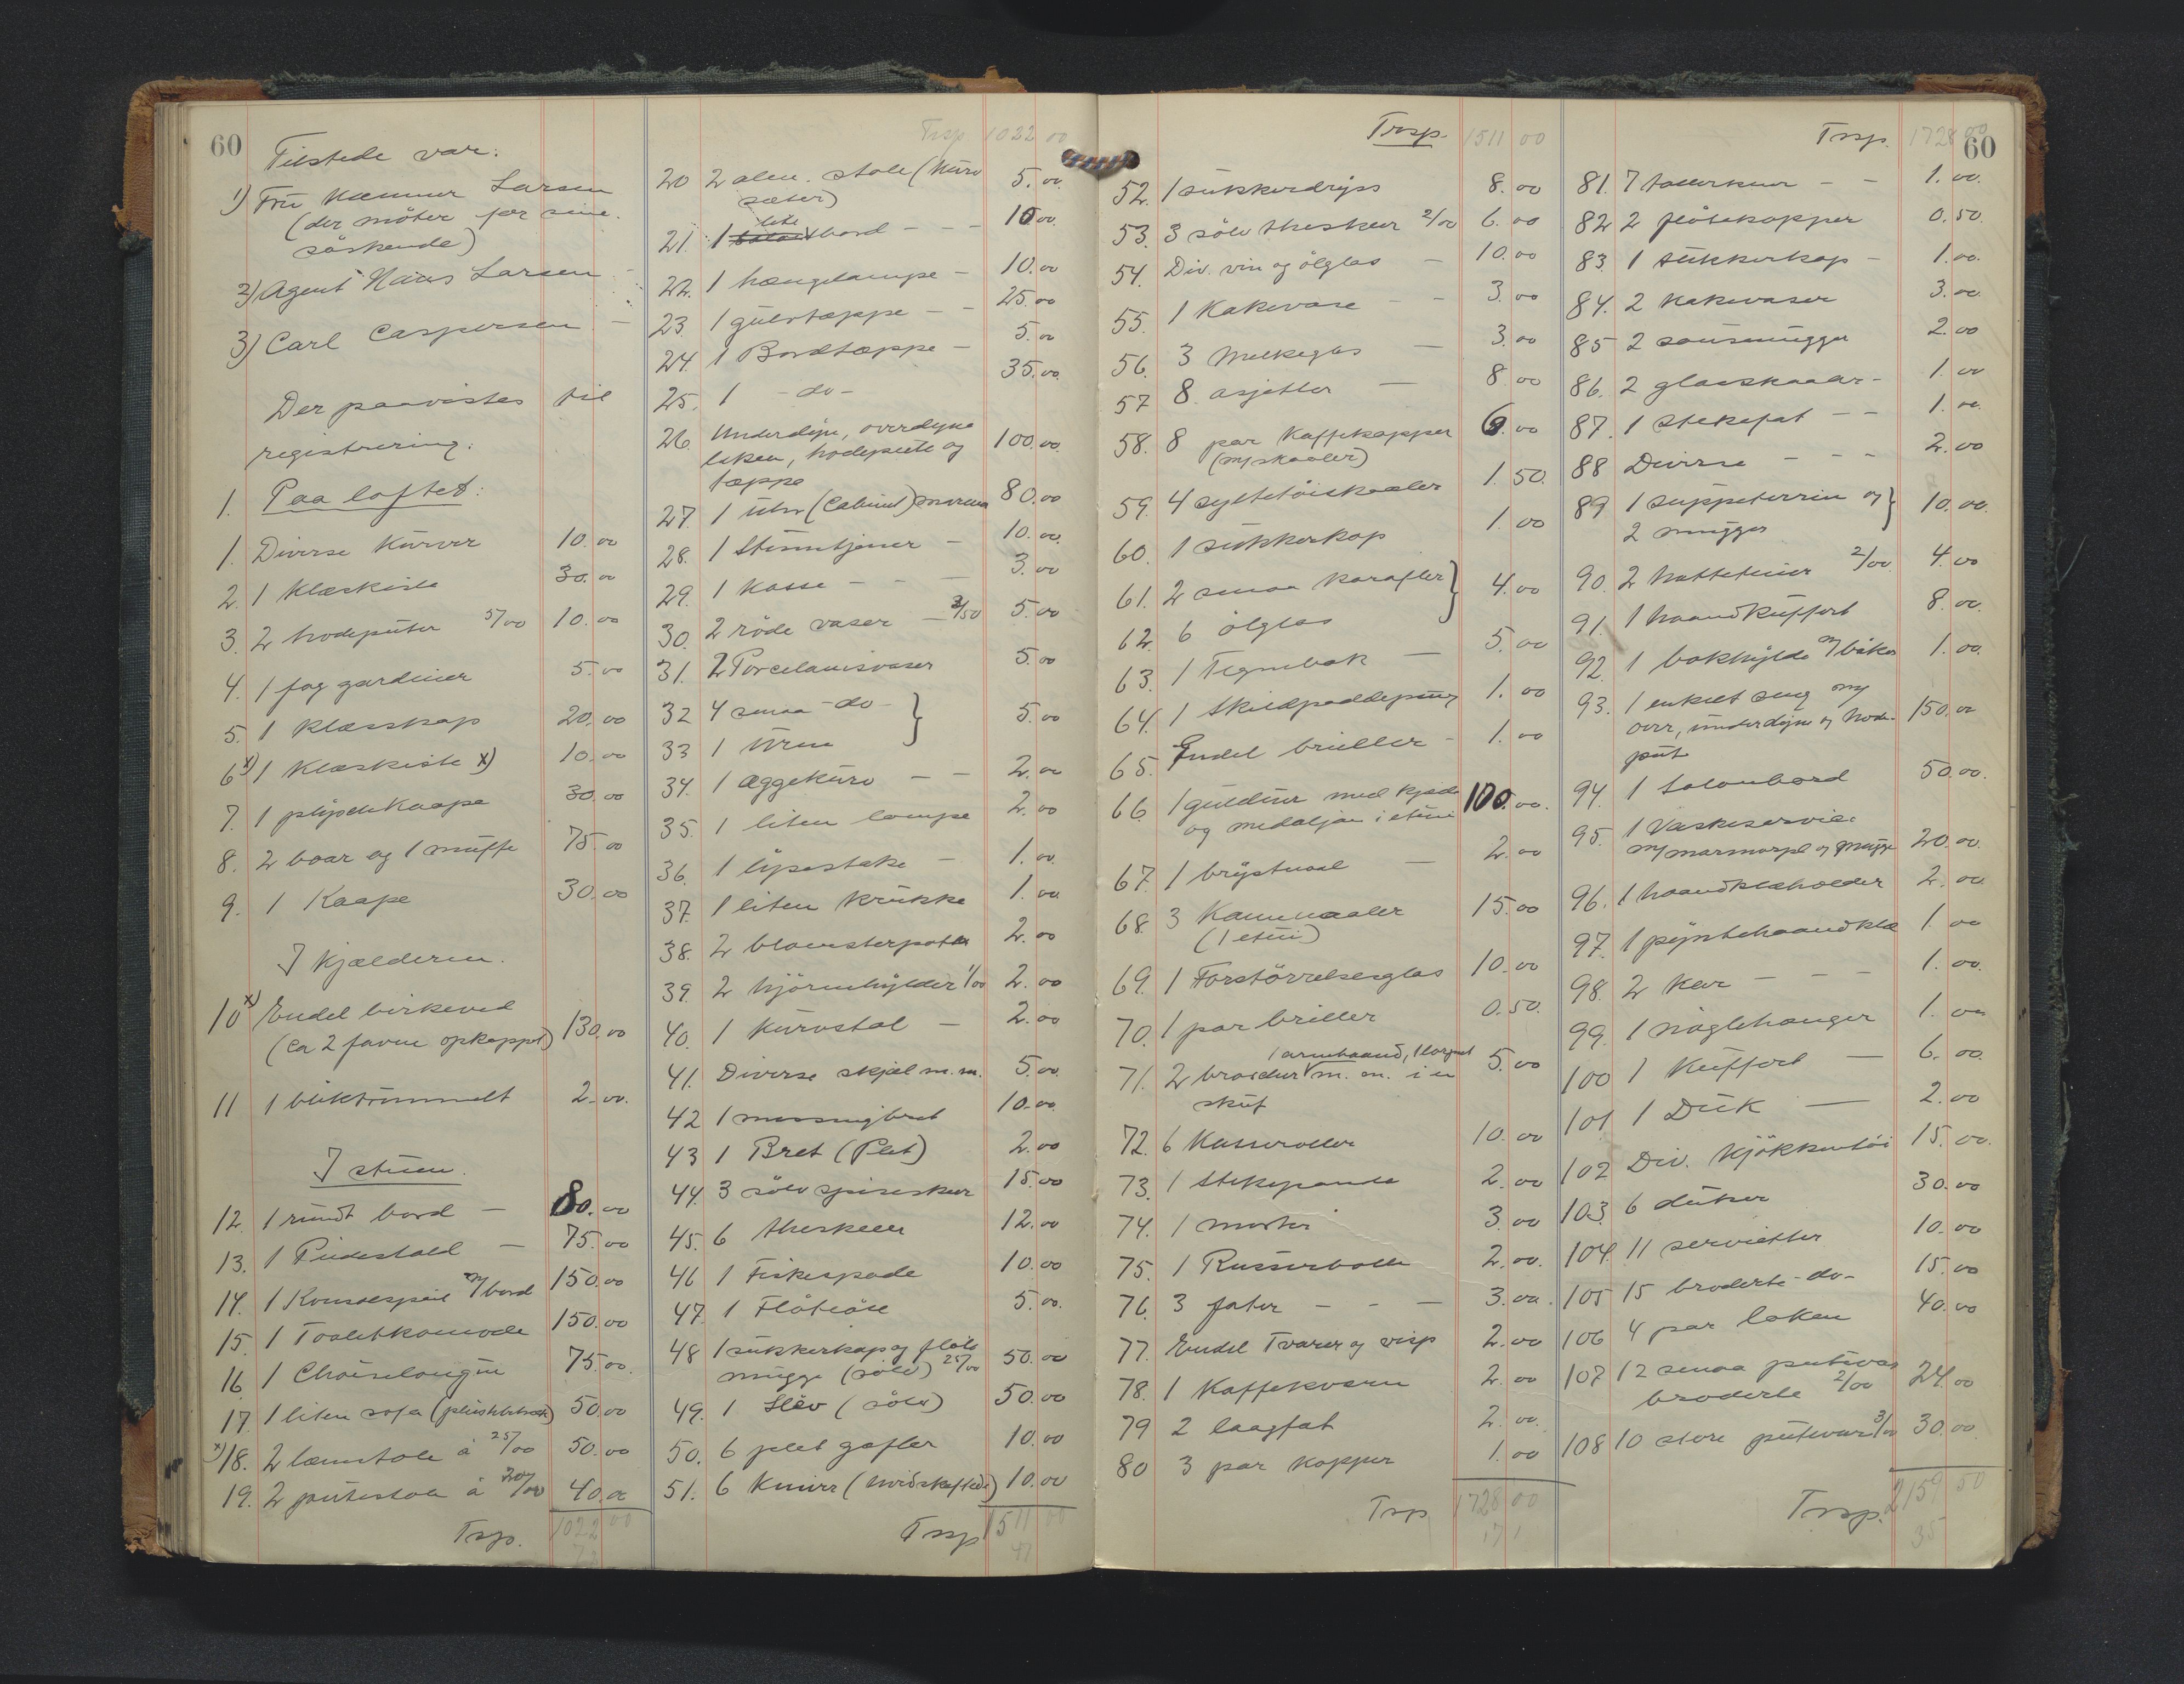 60
Tilstede var:
1) Fru Kæmner Larsen
(der möter for sine
söskende)
2) Agent Hans Larsen
3) Carl Caspersen
Der paavistes til
registrering:
1. Paa loftet:
1. Diverse Kurver 10.00
2. 1 Klæskiste 30.00
3. 2 hodeputer 5/00 10.00
4. 1 fag gardiner 5.00
5. 1 Klæsskap 20.00
6 x) 1 Klæskiste x) 10.00
7. 1 plyschkaape 30.00
8. 2 boar og 1 muffe 75.00
9. 1 Kaape 30.00
I kjælderen.
10 x) Endel birkeved
(ca 2 favne opkappet) 130.00
11 1 bliktrommelt 2.00.
I stuen.
12. 1 rundt bord - 80.00
13. 1 Piedestald - 75.00
14. 1 Konsolspeil m/bord 150.00
15. 1 Toaletkomode 150.00
16. 1 Chaiselongue 75.00.
17. 1 liten sofa (pluschbetræk) 50.00
x) 18. 2 lænestole á 25/00 50.00
19. 2 putestole á 20/00 40.00
Trsp. 1022 00
Trsp 1022 00
20 2 alm. stole (kurv
sæter) 5.00.
21. 1 lite bord - - - 10.00.
22. 1 hængelampe - 10.00
23. 1 gulvtæppe - - 25.00
24. 1 Bordtæppe - 5.00
25. 1 -do- 35.00.
26. Underdyne, overdyne
laken, hodepute og
tæppe 100.00.
27. 1 Uhr (Cabinet) 80.00
28. 1 Stumtjener - 10.00.
29. 1 Kasse - - - 3.00
30. 2 röde vaser - 2/50 5.00
31. 2 Porcelainsvaser 5.00
32 4 smaa -do- } 5.00
33 1 Urne
34. 1 æggekurv - - 2.00
35. 1 liten lampe 2.00
36. 1 lysestake - 1.00.
37. 1 liten krukke 1.00.
38. 2 blomsterpotter 2.00
39. 2 hjörnehylder 1/00 2.00
40. 1 Kurvstol - 2.00
41. Diverse skjæl m.m. 5.00.
42 1 messingbret 10.00.
43 1 Bret (Plet) 2.00
44. 3 sölv spiseskeer 15.00
45. 6 theskeer 12.00
46 1 Fiskespade 10.00
47. 1 Flöteöse 5.00.
48 1 sukkerkop og flöte
mugge (sölv) 25/00 50.00
49. 1 Slev (sölv) 50.00
50. 6 plet gafler 10.00
51. 6 Kniver (hvidskaftede) 10.00
Trsp 1511 00
Trsp. 1511 00
52. 1 sukkerdryss 8.00
53. 3 sölv theskeer 2/00 6.00
54. Div. vin og ölglas - 10.00
55. 1 Kakevase - - 3.00
56. 3 Melkeglas - 3.00
57 8 asjetter - 8.00
58. 8 par Kaffekopper
(m/skaaler) 6.00
59. 4 syltetöiskaaler 1.50.
60. 1 sukkerkop 1.00
61. 2 smaa karafler } 4.00
62. 6 ölglas
63. 1 Tegnebok - 5.00
64. 1 Skildpaddepung 1.00
65. Endel briller - 1.00
66 1 guldur med kjede
og medaljon i etui 100.00.
67. 1 brystnaal - 2.00
68. 3 Kamnaaler
(1 etui) 15.00
69. 1 Forstörrelsesglas 10.00
70. 1 par briller 0.50.
1 armbaand, 1 lorgnet
71. 2 brocher m.m. i en
skuf 5.00
72. 6 Kasseroller 10.00
73. 1 Stekepande 2.00
74. 1 morter 3.00
75. 1 Russerbolle 2.00.
76. 3 fater - - - 3.00.
77. Endel Tvarer og visp 2.00
78. 1 Kaffekvern 2.00
79 2 laagfat 2.00.
80 3 par kopper 1.00
Trsp 1728 00
Trsp. 1728 00
60
81. 7 tallerkner - - 1.00.
82 2 flötekopper 0.50.
83. 1 sukkerkop - 1.00.
84. 2 kakevaser 3.00
85 2 sausemugger 2.00
86. 2 glasskaaler - 1.00
87. 1 Stekefat - - 1.00.
88 Diverse - - - 2.00
89 1 suppeterrin og }
2 mugger 10.00.
90. 2 hatteteiner 2/00 4.00
91. 1 haandkuffert 8.00.
92. 1 bokhylde m/bøker 1.00.
93. 1 enkelt seng m/
over, underdyne og hode-
pute 150.00
94. 1 Salonbord 50.00.
95. 1 Vaskeservise
m/marmorpl og mugge 20.00.
96. 1 haandklæholder 2.00.
97. 1 pyntehaandklæ 1.00
98. 2 kar - - - 1.00.
99. 1 nöglehanger 1.00
100 1 Kuffert - 6.00.
101 1 Duk - 2.00
102 Div. Kjökkentöi 15.00.
103. 6 duker 30.00
104. 11 servietter 10.00
105 15 broderte -do- 15.00
106 4 par laken 40.00
107 12 smaa putevar
broderte 2/00 24.00
108 10 store putevar 3/00 30.00.
Trsp. 2159 50